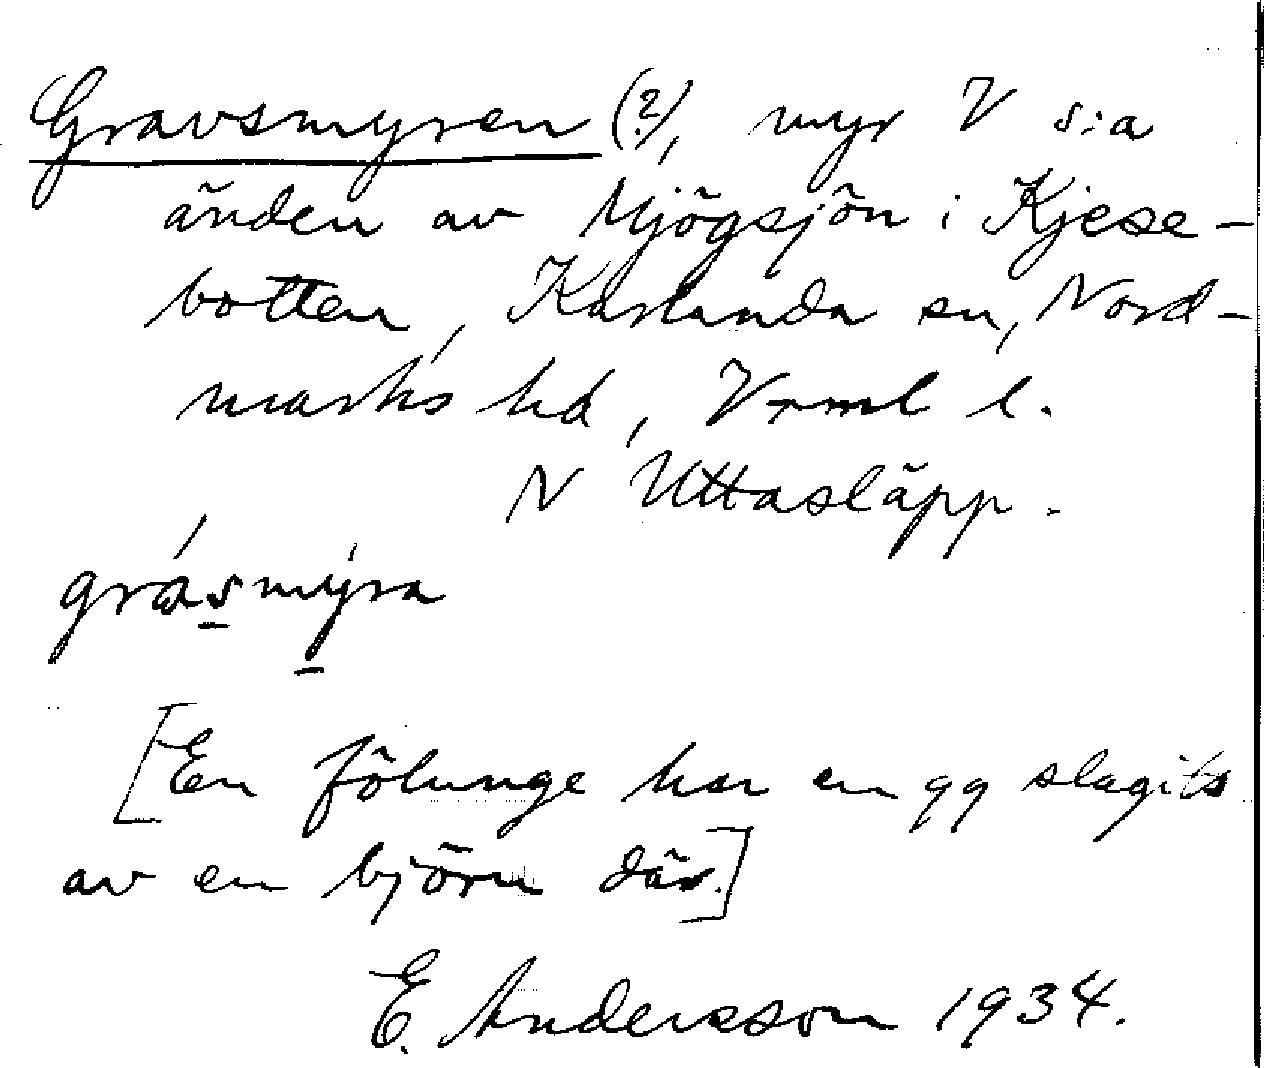 Gravsmyren (?), myr V s:a
änden av Mjögsjön i Kjese-
botten, Karlanda sn, Nord-
marks hd, Vrml l.
N Uttasläpp.
gräsmyra
[En fölunge har en gg slagits
av en björn där.]
E. Andersson 1934.